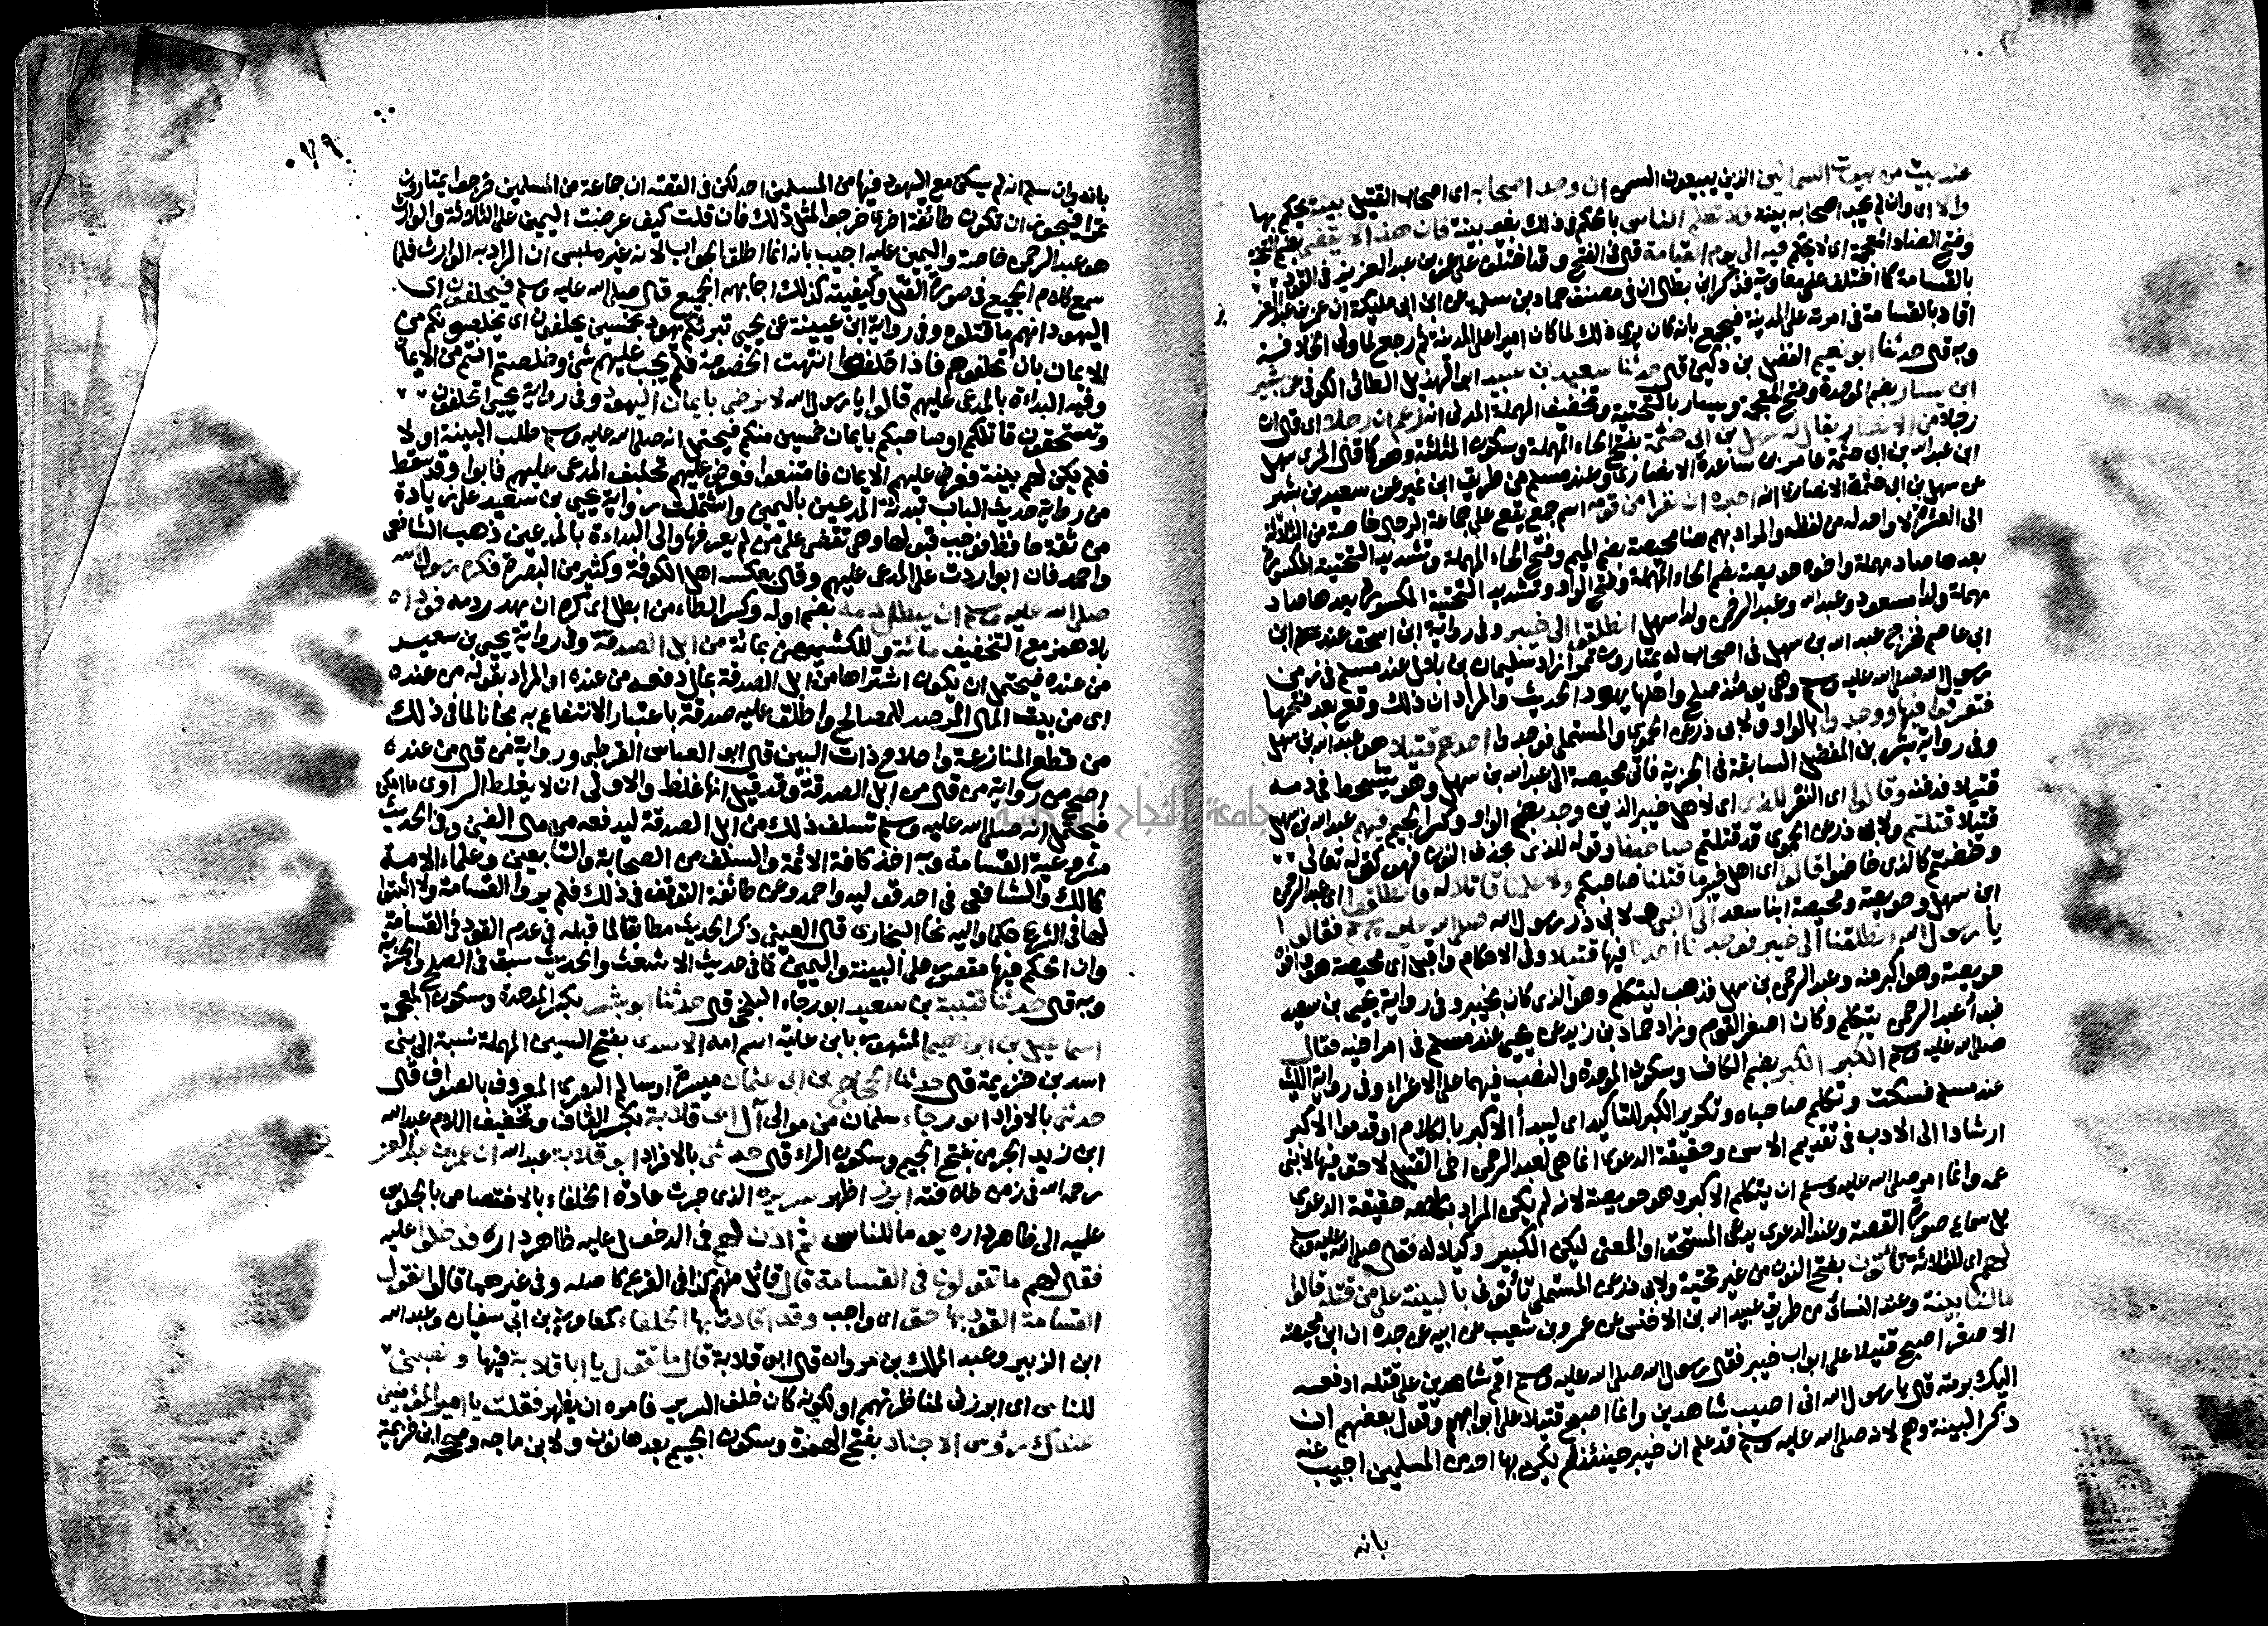 عند بيت من بيوت السمانين الذين يبيعون السمن ان وجد اصحابه اى اصحاب القتيل بينة يحكم بها
والا اى وان لم يجد اصحابه بينة فلا تظلم الناس بالحكم فى ذلك بغير بينة فان هذا لا يقضى بضم التحتية
وفتح الضاد المعجمة اى لا يحكم فيه الى يوم القيامة قال فى الفتح وقد اختلف على عمر بن عبد العزيز فى القود
بالقسامة كما اختلف على معاوية فذكر ابن بطال ان فى مصنف حماد بن سلمة عن ابن ابى مليكة ان عمر بن عبد العزيز
اقاد بالقسامة فى امرته على المدينة فيجمع بانه كان يرى ذلك لما كان اميرا على المدينة ثم رجع لما ولى الخلافة
وبه قال حدثنا ابو نعيم الفضل بن دكين قال حدثنا سعيد بن عبيد ابو الهذيل الطائى الكوفى عن بشير
ابن يسار بضم الموحدة وفتح المعجمة ويسار بالتحتية وتخفيف المهملة المدنى انه زعم ان رجلا اى قال ان
رجلا من الانصار يقال له سهل بن ابى حثمة بفتح الحاء المهملة وسكون المثلثة وهو كما قال المزى سهل
ابن عبد الله بن ابى حثمة عامر بن ساعدة الانصارى وعند مسلم من طريق ابن نمير عن سعيد بن بشير
عن سهل بن ابى حثمة الانصارى انه اخبره ان نفرا من قومه اسم جمع يقع على جماعة الرجال خاصة من الثلاثة
الى العشرة لا واحد له من لفظه والمراد بهم هنا محيصة بضم الميم وفتح الحاء المهملة وتشديد التحتية المكسورة
بعدها صاد مهملة واخوه حويصة بضم الحاء المهملة وفتح الواو وتشديد التحتية المكسورة بعدها صاد
مهملة ولدا مسعود وعبد الله وعبد الرحمن ولدا سهل انطلقوا الى خيبر وفى رواية ابن اسحق عند ابن
ابى عاصم فخرج عبد الله بن سهل فى اصحاب له يمتارون تمرا زاد سليمان بن بلال عند مسلم فى زمن
رسول الله صلى الله عليه وسلم وهى يومئذ صلح واهلها يهود الحديث والمراد ان ذلك وقع بعد فتحها
فتفرقوا فيها ووجدوا بالواو ولابى ذر عن الحموى والمستملى فوجدوا احدهم قتيلا هو عبد الله بن سهل
وفى رواية بشر بن المفضل السابقة فى الجزية فاتى محيصة الى عبد الله بن سهل وهو يتشحط فى دمه
قتيلا فدفنه وقالوا اى النفر للذى اى لاهل خيبر الذين وجد بضم الواو وكسر الجيم فيهم عبد الله بن سهل
قتيلا قتلتم ولابى ذر عن الحموى قد قتلتم صاحبنا وقوله للذى بحذف النون فهو كقوله تعالى
وخضتم كالذى خاضوا قالوا اى اهل خيبر ما قتلنا صاحبكم ولا علمنا قاتلا له فانطلقوا اى عبد الرحمن
ابن سهل وحويصة ومحيصة ابنا سعد الى النبى لابى ذر رسول الله صلى الله عليه وسلم فقالوا
يا رسول الله انطلقنا الى خيبر فوجدنا احدنا فيها قتيلا وفى الاحكام واقبل اى محيصة هو واخوه
حويصة وهو اكبر منه وعبد الرحمن بن سهل فذهب ليتكلم وهو الذى كان بخيبر وفى رواية يحيى بن سعيد
فبدأ عبد الرحمن يتكلم وكان اصغر القوم وزاد حماد بن زيد عن يحيى عند مسلم فى امر اخيه فقال
صلى الله عليه وسلم الكبر الكبر بضم الكاف وسكون الموحدة والنصب فيهما على الاغراء وفى رواية الليث
عند مسلم فسكت وتكلم صاحباه وتكرير الكبر للتاكيد اى ليبدأ الاكبر بالكلام او قدموا الاكبر
ارشادا الى الادب فى تقديم الاسن وحقيقة الدعوى انما هى لعبد الرحمن اخى القتيل لا حق فيها لابنى
عمه وانما امر صلى الله عليه وسلم ان يتكلم الاكبر وهو حويصة لانه لم يكن المراد بكلامه حقيقة الدعوى
بل سماع صورة القصة وعند الدعوى يدعى المستحق او المعنى ليكن الكبير وكيلا له فقال صلى الله عليه وسلم
لهم اى للثلاثة تأتون بفتح النون من غير تحتية ولابى ذر عن المستملى تأتونى بالبينة على من قتله قالوا
ما لنا بينة وعند النسائى من طريق عبيد الله بن الاخنس عن عمرو بن شعيب عن ابيه عن جده ان ابن محيصة
الاصغر اصبح قتيلا على ابواب خيبر فقال رسول الله صلى الله عليه وسلم اقم شاهدين على قتله ادفعه
اليك برمته قال يا رسول الله انى اصيب شاهدين وانما اصبح قتيلا على ابوابهم وقول بعضهم ان
ذكر البينة وهم لانه صلى الله عليه وسلم قد علم ان خيبر حينئذ لم يكن بها احد من المسلمين اجيب عنه
بانه
٧٩
بانه وان سلم انه لم يسكن مع اليهود فيها من المسلمين احد لكن فى القصة ان جماعة من المسلمين خرجوا يمتارون
تمرا فيجوز ان تكون طائفة اخرى خرجوا لمثل ذلك فان قلت كيف عرضت اليمين على الثلاثة والوارث
هو عبد الرحمن خاصة واليمين عليه اجيب بانه انما اطلق الجواب لانه غير ملبس ان المراد به الوارث فكما
سمع كلام الجميع فى صورة القتل وكيفيته كذلك اجابهم الجميع قال صلى الله عليه وسلم فيحلفون اى
اليهود انهم ما قتلوه وفى رواية ابن عيينة عن يحيى تبرئكم يهود بخمسين يحلفون اى يخلصونكم من
الايمان بان تحلفوهم فاذا حلفوا انتهت الخصومة فلم يجب عليهم شئ وخلصتم انتم من الايمان
وفيه البداءة بالمدعى عليهم قالوا يا رسول الله لا نرضى بايمان اليهود وفى رواية يحيى اتحلفون
وتستحقون قاتلكم او صاحبكم بايمان خمسين منكم فيحتمل انه صلى الله عليه وسلم طلب البينة اولا
فلم يكن لهم بينة فعرض عليهم الايمان فامتنعوا فعرض عليهم تحليف المدعى عليهم فابوا وقد سقط
من رواية حديث الباب تبدئة المدعين باليمين واشتملت رواية يحيى بن سعيد على زيادة
من ثقة حافظ فوجب قبولها وهى تقضى على من لم يعرفها والى البداءة بالمدعين ذهب الشافعى
واحمد فان ابوا ردت على المدعى عليهم وقال بعكسه اهل الكوفة وكثير من البصرة فكره رسول الله
صلى الله عليه وسلم ان يبطل دمه بضم اوله وكسر الطاء من ابطل اى كره ان يهدر دمه فوداه
بلا همز مع التخفيف مائة وللكشميهنى بمائة من ابل الصدقة وفى رواية يحيى بن سعيد
من عنده فيحتمل ان يكون اشتراها من ابل الصدقة بمال دفعه من عنده او المراد بقوله من عنده
اى من بيت المال المرصد للمصالح واطلق عليه صدقة باعتبار الانتفاع به مجانا لما فى ذلك
من قطع المنازعة واصلاح ذات البين قال ابو العباس القرطبى ورواية من قال من عنده
اصح من رواية من قال من ابل الصدقة وقد قيل انها غلط والاولى ان لا يغلط الراوى ما امكن
فيحتمل انه صلى الله عليه وسلم تسلف ذلك من ابل الصدقة ليدفعه من مال الفئ وفى الحديث
مشروعية القسامة وبه اخذ كافة الائمة والسلف من الصحابة والتابعين وعلماء الامة
كمالك والشافعى فى احد قوليه واحمد وعن طائفة التوقف فى ذلك فلم يروا القسامة ولا اثبتوا
لها فى الشرع حكما واليه نحا البخارى قال العينى ذكر الحديث مطابقا لما قبله فى عدم القود فى القسامة
وان الحكم فيها مقصور على البينة واليمين كما فى حديث الاشعث والحديث سبق فى الصلح والجزية
وبه قال حدثنا قتيبة بن سعيد ابو رجاء البلخى قال حدثنا ابو بشر بكسر الموحدة وسكون المعجمة
اسماعيل بن ابراهيم المشهور بابن علية اسم امه الاسدى بفتح السين المهملة نسبة الى بنى
اسد بن خزيمة قال حدثنا الحجاج بن ابى عثمان ميسرة او سالم البصرى المعروف بالصواف قال
حدثنى بالافراد ابو رجاء سلمان من موالى آل ابى قلابة بكسر القاف وتخفيف اللام عبد الله
ابن زيد الجرمى بفتح الجيم وسكون الراء قال حدثنى بالافراد ابو قلابة عبد الله ان عمر بن عبد العزيز
رحمه الله فى زمن خلافته ابرز اظهر سريره الذى جرت عادة الخلفاء بالاختصاص بالجلوس
عليه الى ظاهر داره يوما للناس ثم اذن لهم فى الدخول عليه ظاهر داره فدخلوا عليه
فقال لهم ما تقولون فى القسامة قال قائل منهم كذا فى الفرع كاصله وفى غيرهما قالوا نقول
القسامة القود بها حق اى واجب وقد اقادت بها الخلفاء كمعاوية بن ابى سفيان وعبد الله
ابن الزبير وعبد الملك بن مروان قال ابو قلابة قال لى ما تقول يا ابا قلابة فيها ونصبنى
للناس اى ابرزنى لمناظرتهم او لكونه كان خلف السرير فامره ان يظهر فقلت يا امير المؤمنين
عندك رؤس الاجناد بفتح الهمزة وسكون الجيم بعدها نون ولابن ماجه وصححه ابن خزيمة
جامعة النجاح الوطنية